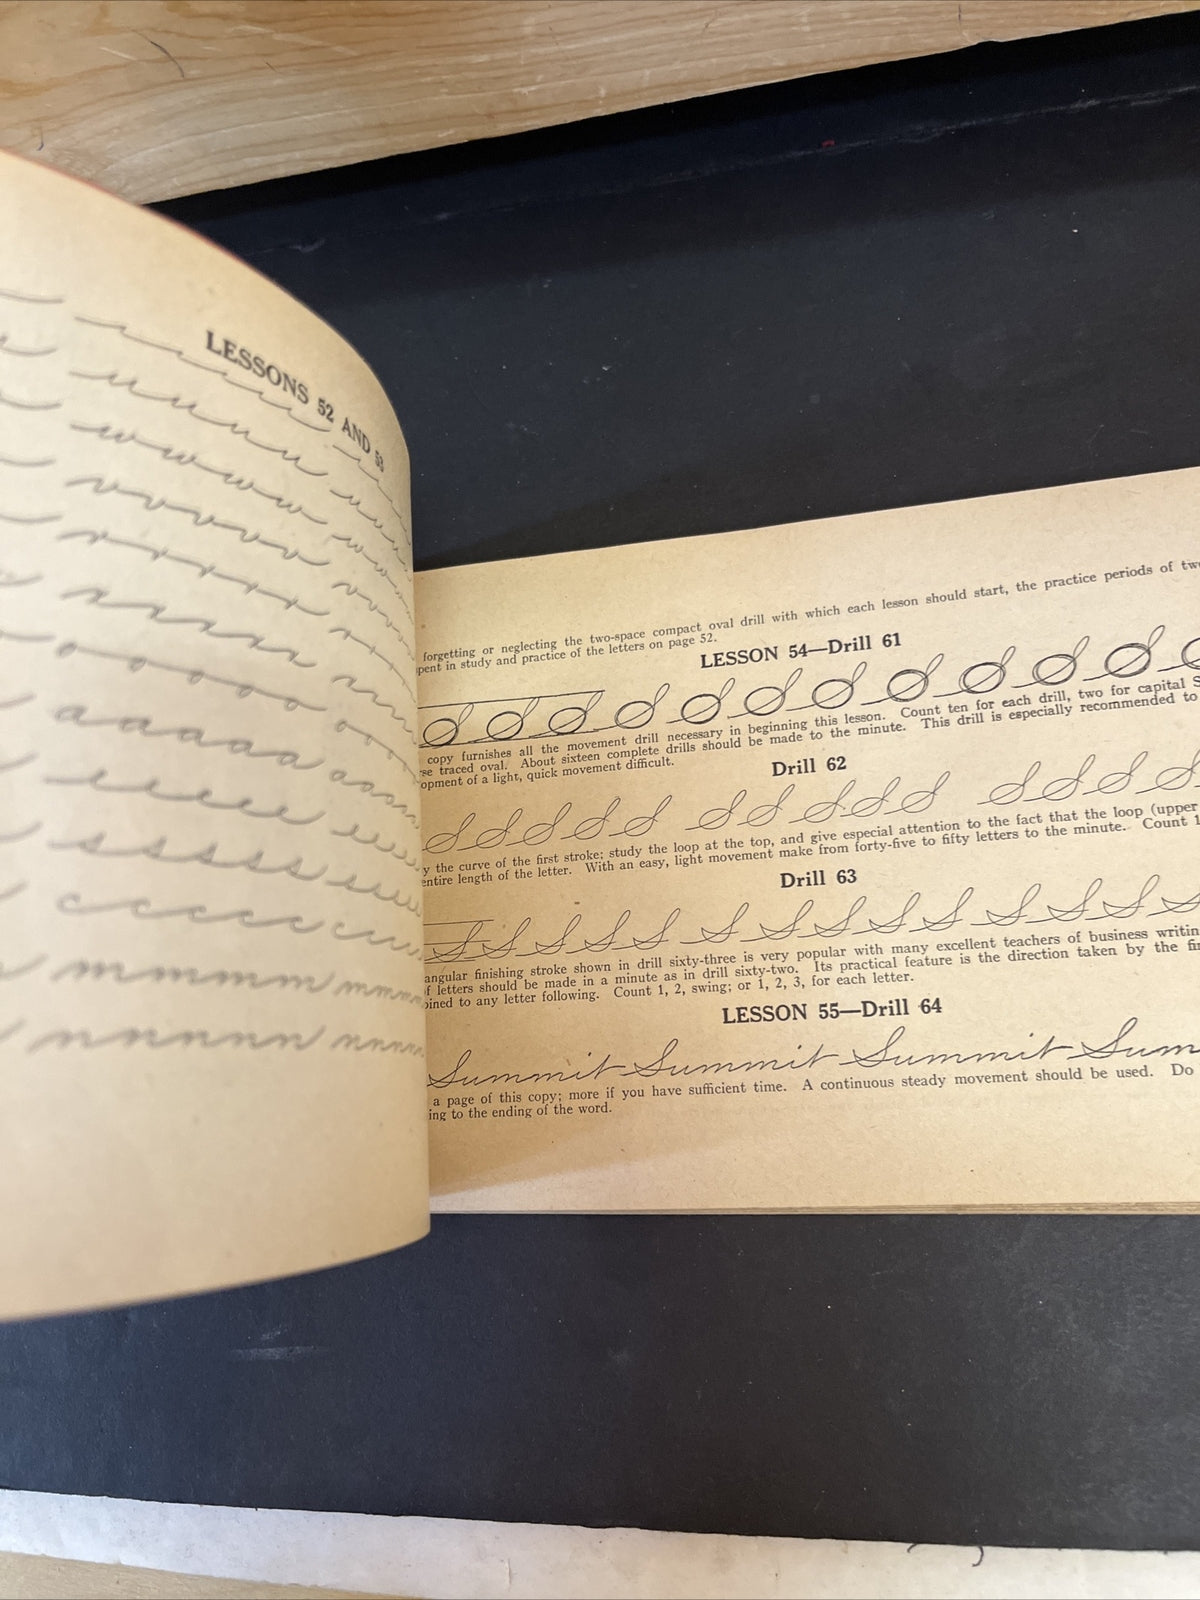 LESSONS 52 AND 53
u u u u u
w w w w w
v v v v v
r r r r r
o o o o o o
a a a a a
e e e e e
s s s s s
c c c c c
m m m m m
n n n n n
forgetting or neglecting the two-space compact oval drill with which each lesson should start, the practice periods of
in study and practice of the letters on page 52.
LESSON 54—Drill 61
copy furnishes all the movement drill necessary in beginning this lesson. Count ten for each drill, two for capital S
traced oval. About sixteen complete drills should be made to the minute. This drill is especially recommended to
of a light, quick movement difficult.
Drill 62
S S S S S S S S S S S S S
the curve of the first stroke; study the loop at the top, and give especial attention to the fact that the loop (upper
entire length of the letter. With an easy, light movement make from forty-five to fifty letters to the minute. Count 1
Drill 63
S S S S S S S S S S S S S S
angular finishing stroke shown in drill sixty-three is very popular with many excellent teachers of business
letters should be made in a minute as in drill sixty-two. Its practical feature is the direction taken by the
to any letter following. Count 1, 2, swing; or 1, 2, 3, for each letter.
LESSON 55—Drill 64
Summit Summit Summit Summ
a page of this copy; more if you have sufficient time. A continuous steady movement should be used. Do
to the ending of the word.